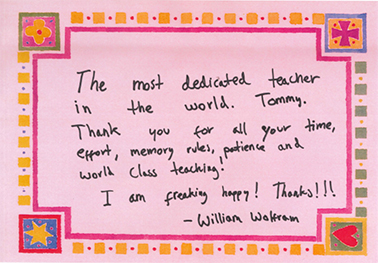 The most dedicated teacher
in the world. Tommy.
Thank you for all your time,
effort, memory rules, patience and
world class teaching!
I am freaking happy! Thanks!!!
- William Wolfram